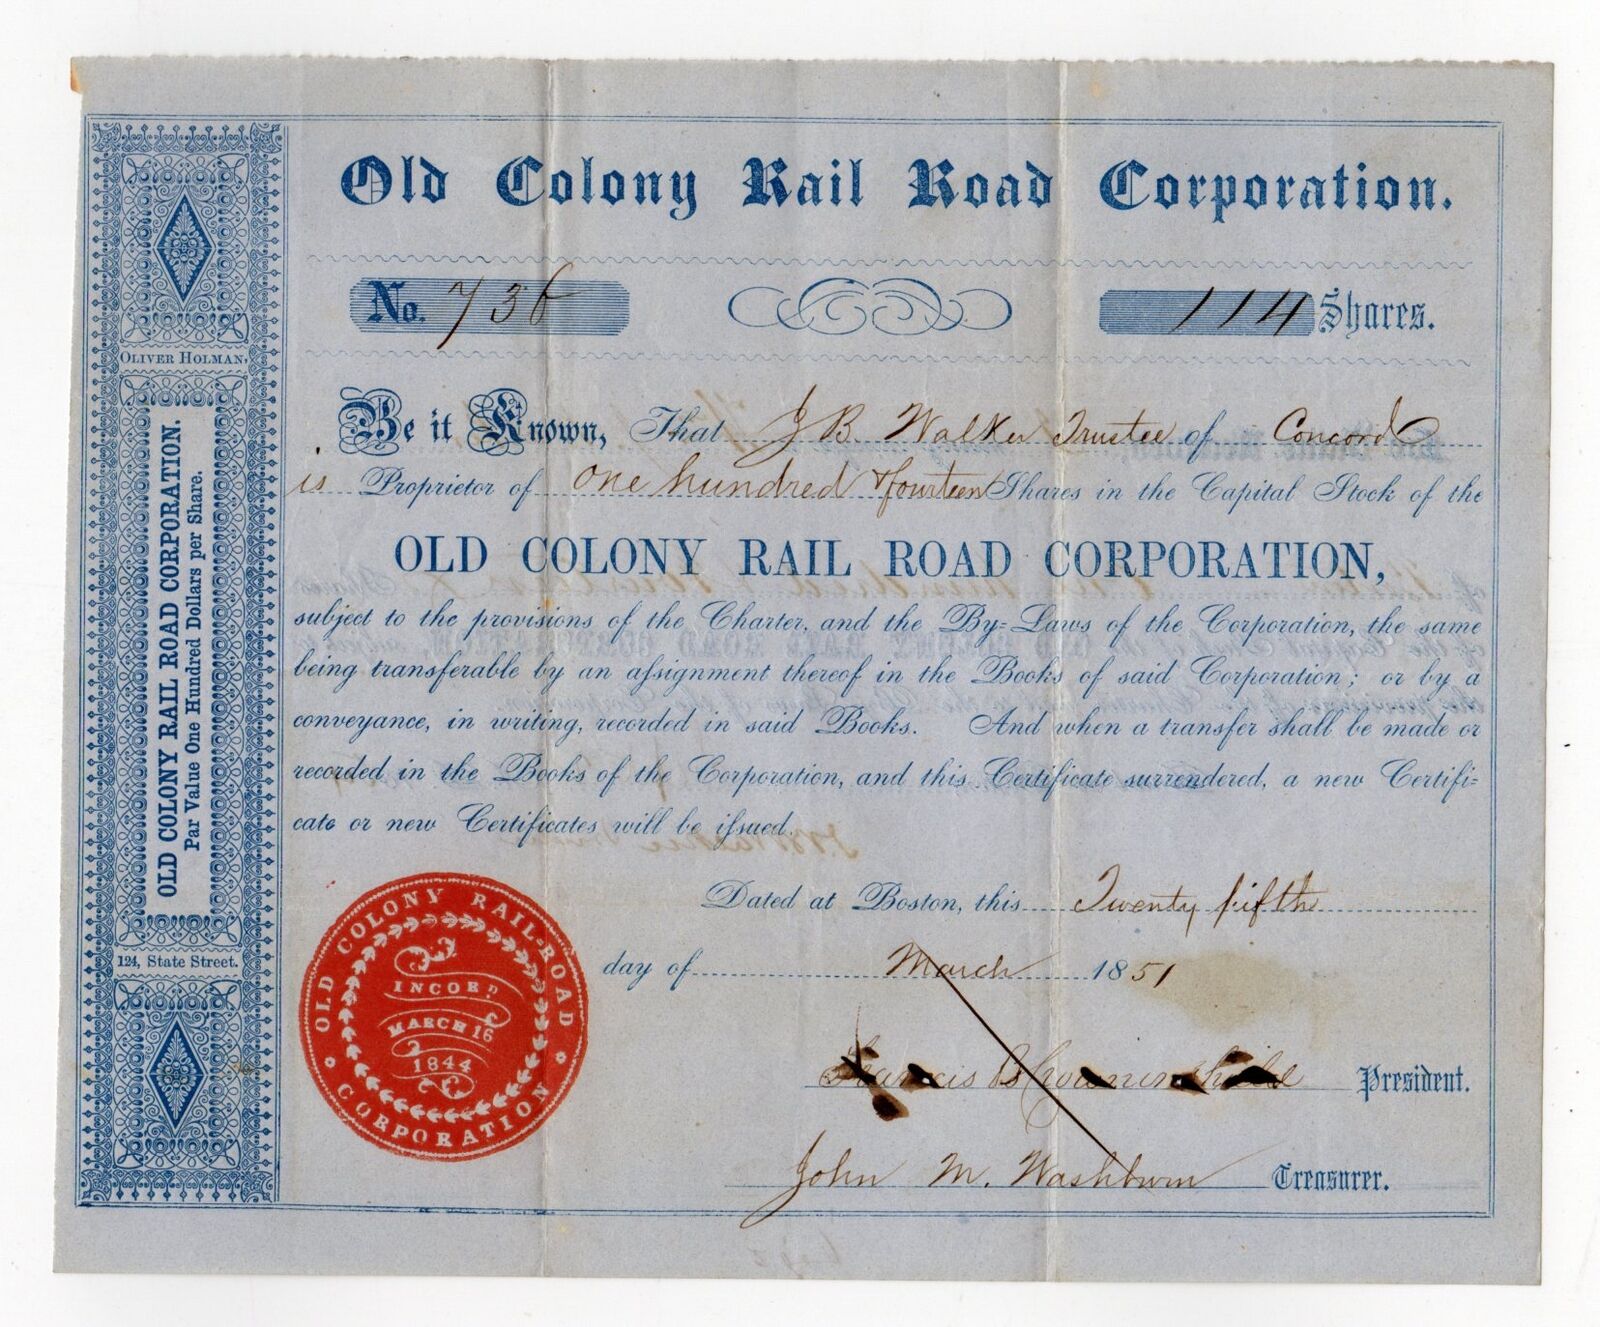 Old Colony Rail Road Corporation.
No. 736
114 Shares.
Be it Known, That J B. Walker Trustee of Concord
is Proprietor of One hundred & fourteen Shares in the Capital Stock of the
OLD COLONY RAIL ROAD CORPORATION,
subject to the provisions of the Charter, and the By=Laws of the Corporation, the same
being transferable by an aſsignment thereof in the Books of said Corporation; or by a
conveyance, in writing, recorded in said Books. And when a transfer shall be made or
recorded in the Books of the Corporation, and this Certificate surrendered, a new Certifi=
cate or new Certificates will be iſsued.
Dated at Boston, this Twenty fifth
day of March 1851
Francis B Crowninshield President.
John M. Washburn Treasurer.
OLIVER HOLMAN,
OLD COLONY RAIL ROAD CORPORATION.
Par Value One Hundred Dollars per Share.
124, State Street.
OLD COLONY RAIL-ROAD
CORPORATION
INCORD
MARCH 16
1844